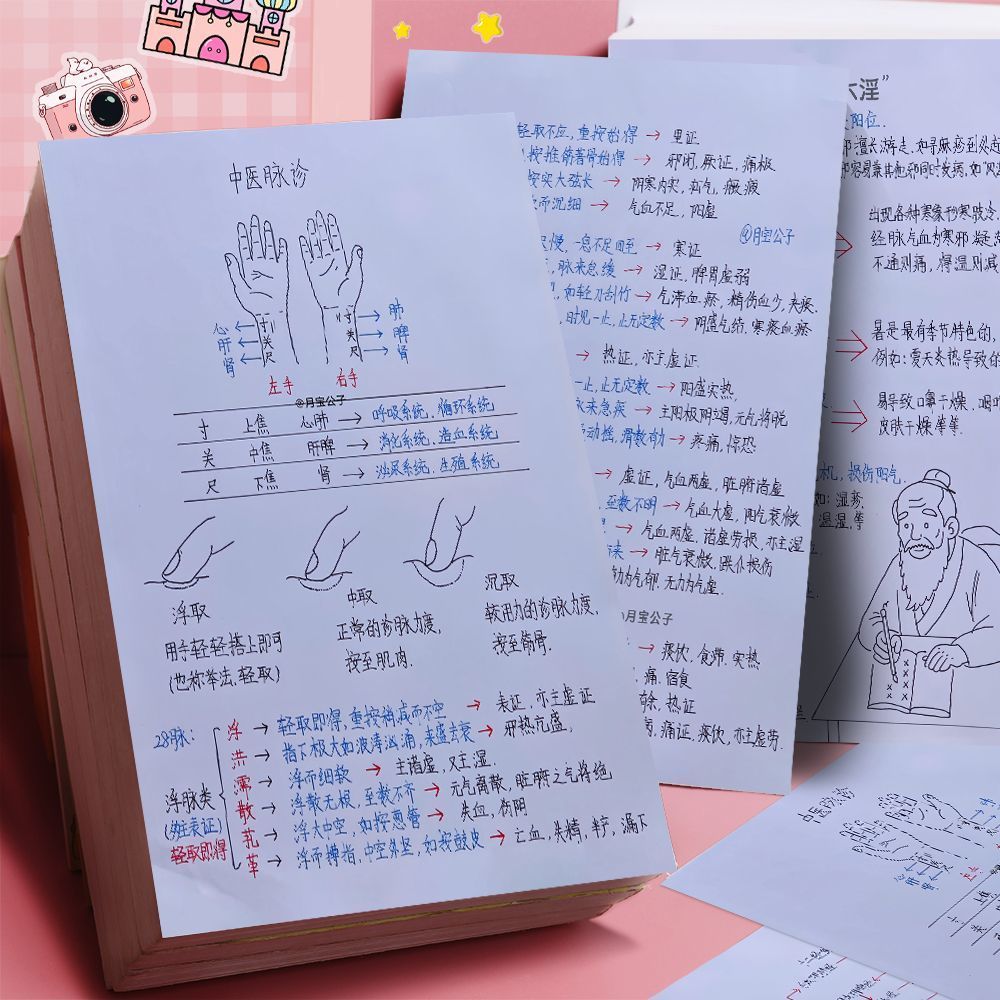 中医脉诊
心
肝
肾
寸
关
尺
寸
关
尺
肺
脾
肾
左手
右手
@月宝公子
寸 上焦 心肺 → 呼吸系统、循环系统
关 中焦 肝脾 → 消化系统、造血系统
尺 下焦 肾 → 泌尿系统、生殖系统
浮取
用手轻轻搭上即可
(也称举法、轻取)
中取
正常的诊脉力度,
按至肌肉.
沉取
较用力的诊脉力度,
按至筋骨.
28脉:
浮脉类
(多主表证)
轻取即得
浮 → 轻取即得,重按稍减而不空 → 表证,亦主虚证
洪 → 指下极大如波涛汹涌,来盛去衰 → 邪热亢盛,
濡 → 浮而细软 → 主诸虚,又主湿.
散 → 浮散无根,至数不齐 → 元气离散,脏腑之气将绝
芤 → 浮大中空,如按葱管 → 失血,伤阴
革 → 浮而搏指,中空外坚,如按鼓皮 → 亡血,失精,半产,漏下
轻取不应,重按始得 → 里证
按推筋著骨始得 → 邪闭,厥证,痛极
按实大弦长 → 阴寒内实,疝气,癥瘕
而沉细 → 气血不足,阳虚
@月宝公子
迟慢,一息不足四至 → 寒证
,脉来怠缓 → 湿证,脾胃虚弱
,如轻刀刮竹 → 气滞血瘀,精伤血少,夹痰
,时见一止,止无定数 → 阴盛气结,寒痰血瘀
→ 热证,亦主虚证
一止,止无定数 → 阳盛实热,
脉来急疾 → 主阳极阴竭,元气将脱
动摇,滑数有力 → 疼痛,惊恐
→ 虚证,气血两虚,脏腑诸虚
至数不明 → 气血大虚,阳气衰微
→ 气血两虚,诸虚劳损,亦主湿
→ 脏气衰微,跌仆损伤
为气郁.无力为气虚.
月宝公子
→ 痰饮,食滞,实热
痛.宿食
余、热证
,痛证,痰饮,亦主虚劳.
六淫”
阳位.
出现各种寒象形寒肢冷.
经脉气血为寒邪凝滞
不通则痛,得温则减
暑是最有季节特色的,
例如:夏天炎热导致的
易导致口鼻干燥、咽
皮肤干燥等等.
机,损伤阳气.
如:湿疹,
湿温,等
中医脉诊